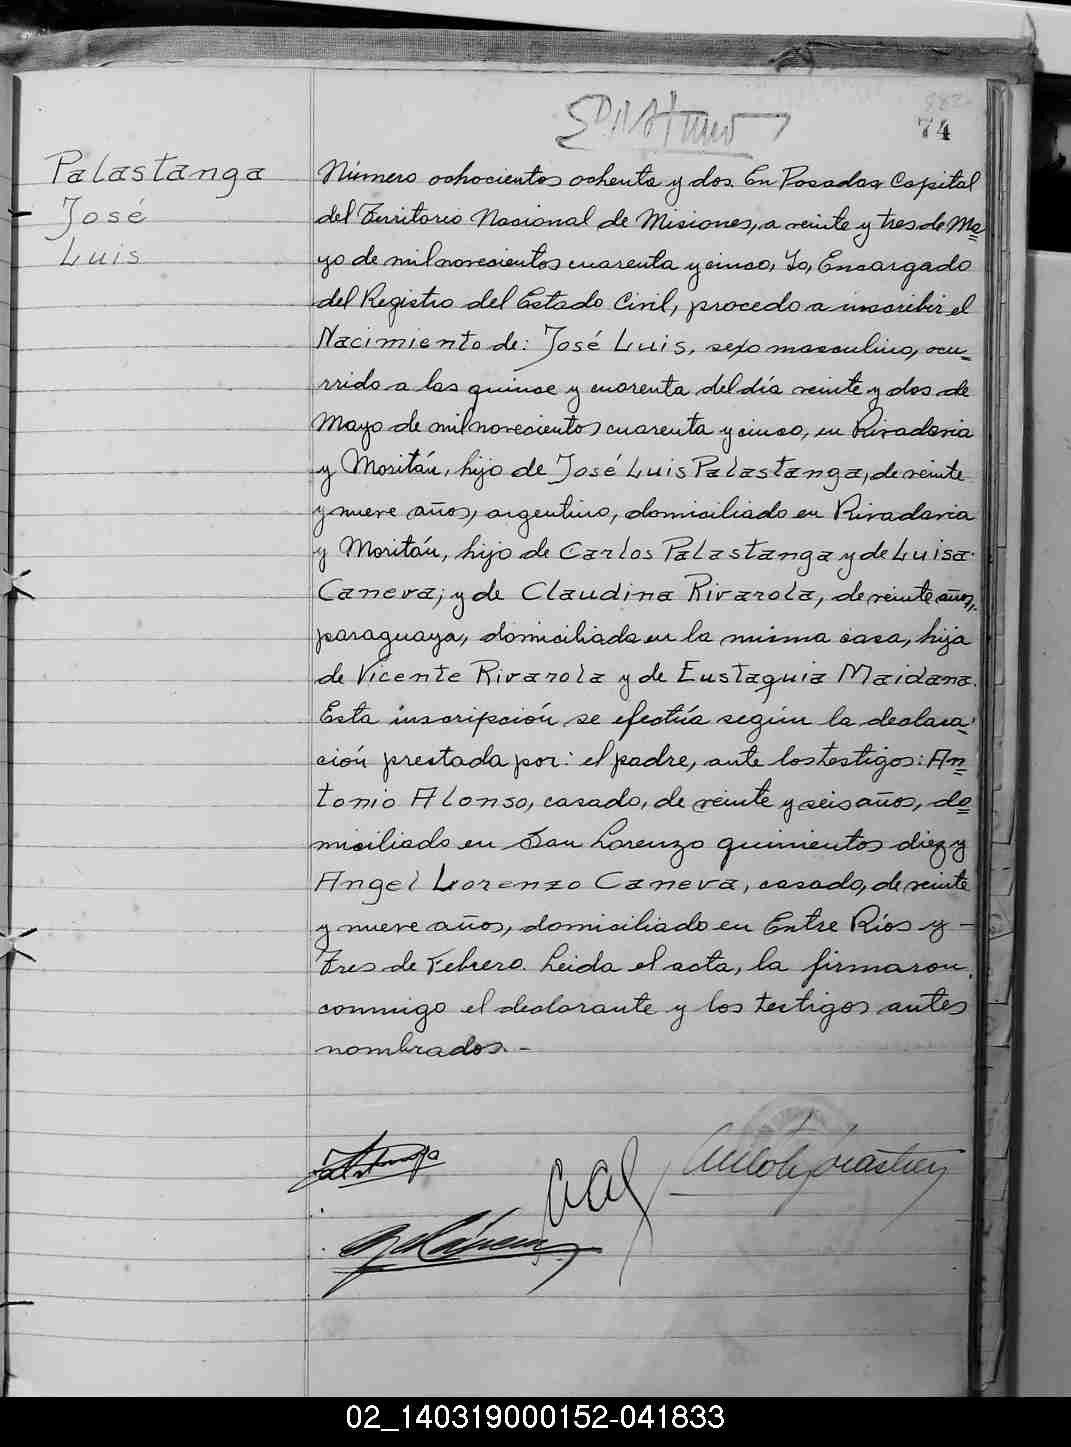 882
74
Palastanga
José
Luis
Número ochocientos ochenta y dos. En Posadas Capital
del Territorio Nacional de Misiones, a veinte y tres de Ma=
yo de mil novecientos cuarenta y cinco, Yo, Encargado
del Registro del Estado Civil, procedo a inscribir el
Nacimiento de: José Luis, sexo masculino, ocu=
rrido a las quince y cuarenta del día veinte y dos de
Mayo de mil novecientos cuarenta y cinco, en Rivadavia
y Moritán, hijo de José Luis Palastanga, de veinte
y nueve años, argentino, domiciliado en Rivadavia
y Moritán, hijo de Carlos Palastanga y de Luisa
Caneva; y de Claudina Rivarola, de veinte años,
paraguaya, domiciliada en la misma casa, hija
de Vicente Rivarola y de Eustaquia Maidana.
Esta inscripción se efectúa según la declara-
ción prestada por: el padre, ante los testigos: An=
tonio Alonso, casado, de veinte y seis años, do=
miciliado en San Lorenzo quinientos diez y
Angel Lorenzo Caneva, casado, de veinte
y nueve años, domiciliado en Entre Ríos y -
Tres de Febrero. Leida el acta, la firmaron
conmigo el declarante y los testigos antes
nombrados.-
02_140319000152-041833